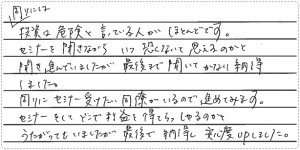 周りには
投資は危険と言っている人がほとんどです。
セミナーを聞きながらいつ恐くないて思えるのかと
聞き進んでいましたが最後まで聞いてかなり納得
しました。
周りにセミナー受けたい同僚がいるので進めてみます。
セミナーをしてどこで利益を得てらっしゃるのかと
うたがってもいましたが最後で納得し充実度upしました。